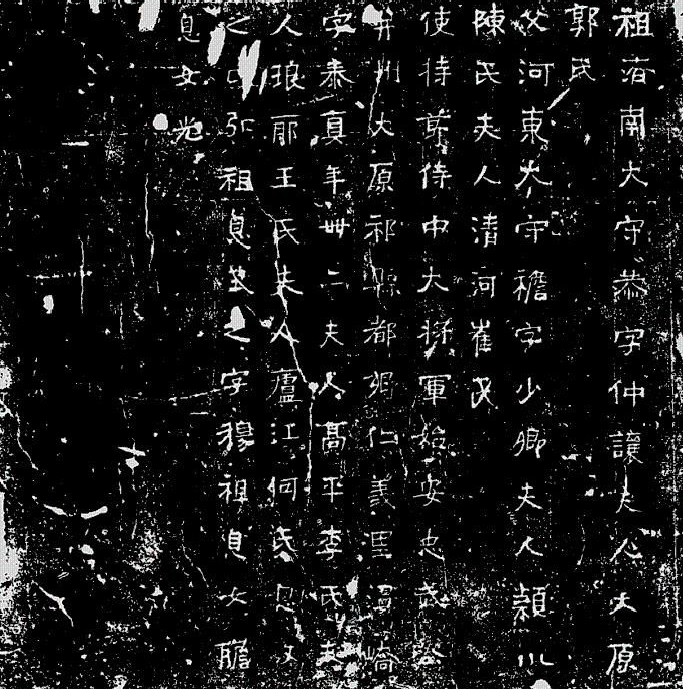 祖濟南太守恭字仲讓夫人太原
郭氏
父河東太守襜字少卿夫人潁川
陳氏夫人清河崔氏
使持節侍中大將軍始安忠武公
并州太原祁縣都鄉仁義里溫嶠
字泰真年卌二夫人高平李氏夫
人琅耶王氏夫人廬江何氏息放
之字弘祖息式之字穆祖息女膽
息女光